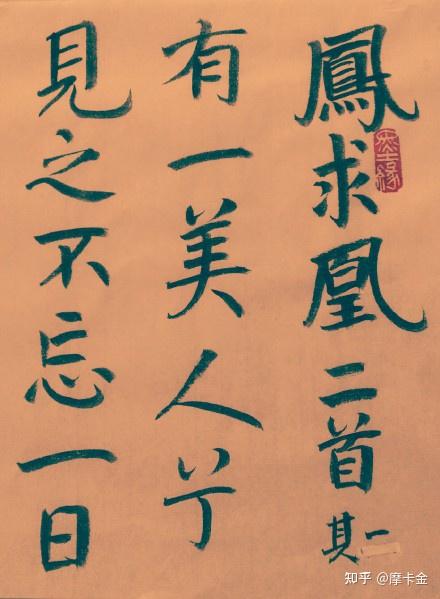 鳳求凰二首其一
有一美人兮
見之不忘一日
知乎 @摩卡金